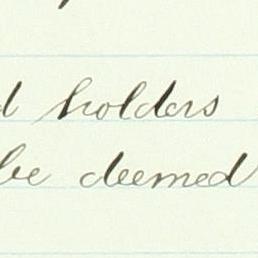 holders
be deemed